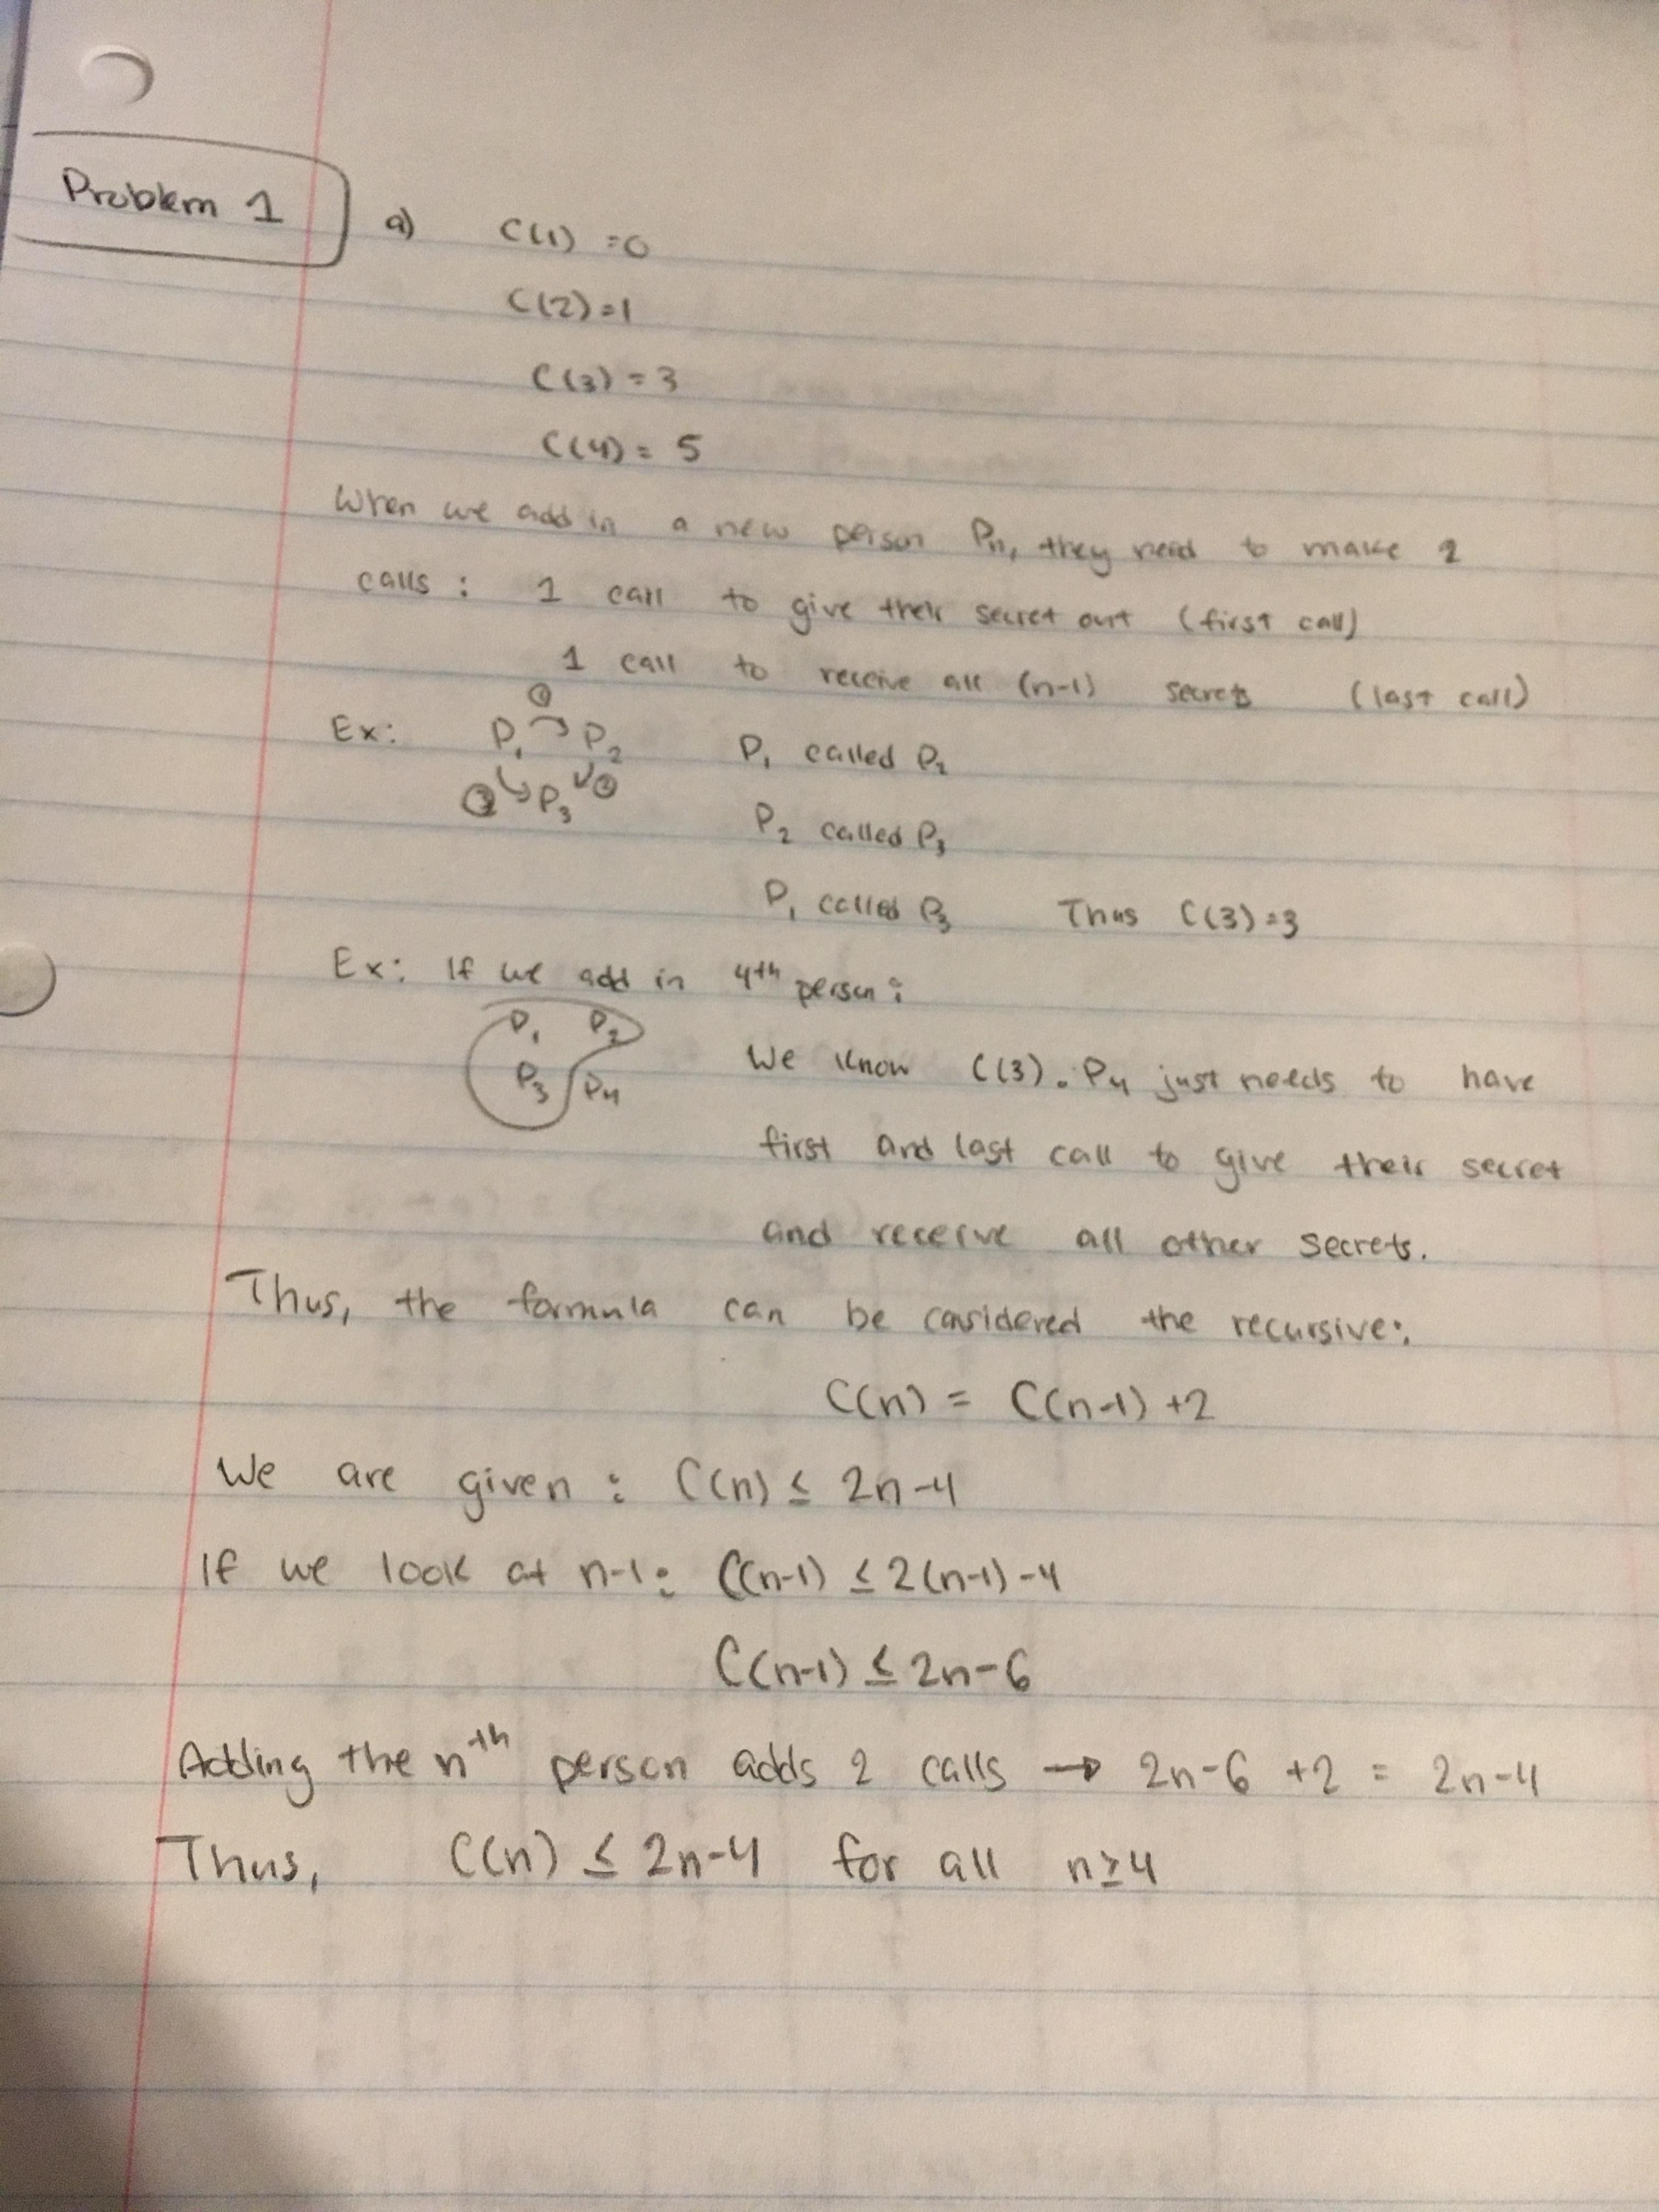 Problem 1
a) C(1) = 0
C(2) = 1
C(3) = 3
C(4) = 5
When we add in a new person Pn, they need to make 2
calls : 1 call to give their secret out (first call)
1 call to receive all (n-1) secrets (last call)
Ex: P1 → P2 P1 called P2
P3 P2 called P3
P1 called P3 Thus C(3) = 3
Ex: If we add in 4th person:
P1 P2
P3 P4 We know C(3). P4 just needs to have
first and last call to give their secret
and receive all other secrets.
Thus, the formula can be considered the recursive:
C(n) = C(n-1) +2
We are given : C(n) ≤ 2n-4
If we look at n-1: C(n-1) ≤ 2(n-1) -4
C(n-1) ≤ 2n-6
Adding the nth person adds 2 calls → 2n-6 +2 = 2n-4
Thus, C(n) ≤ 2n-4 for all n≥4